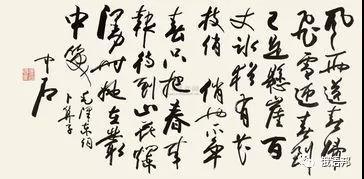 风雨送春归
飞雪迎春到
已是悬崖百
丈冰犹有花
枝俏 俏也不争
春只把春来
报待到山花烂
漫时她在丛
中笑
毛泽东词
卜算子
中石
俄语邦